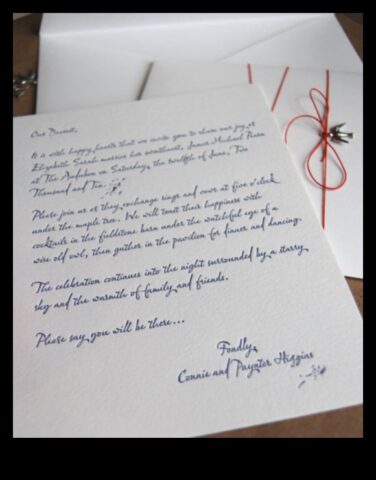 Our Dearest,
It is with happy hearts that we invite you to share our joy as
Elizabeth Sarah marries her sweetheart, James Michael
at The Audubon on Saturday, the twelfth of June, Two
Thousand and Ten.
Please join us as they exchange rings and vows at five o'clock
under the maple tree. We will toast their happiness with
cocktails in the fieldstone barn under the watchful eye of a
wise old owl, then gather in the pavilion for dinner and dancing.
The celebration continues into the night surrounded by a starry
sky and the warmth of family and friends.
Please say you will be there...
Fondly,
Connie and Paynter Higgins